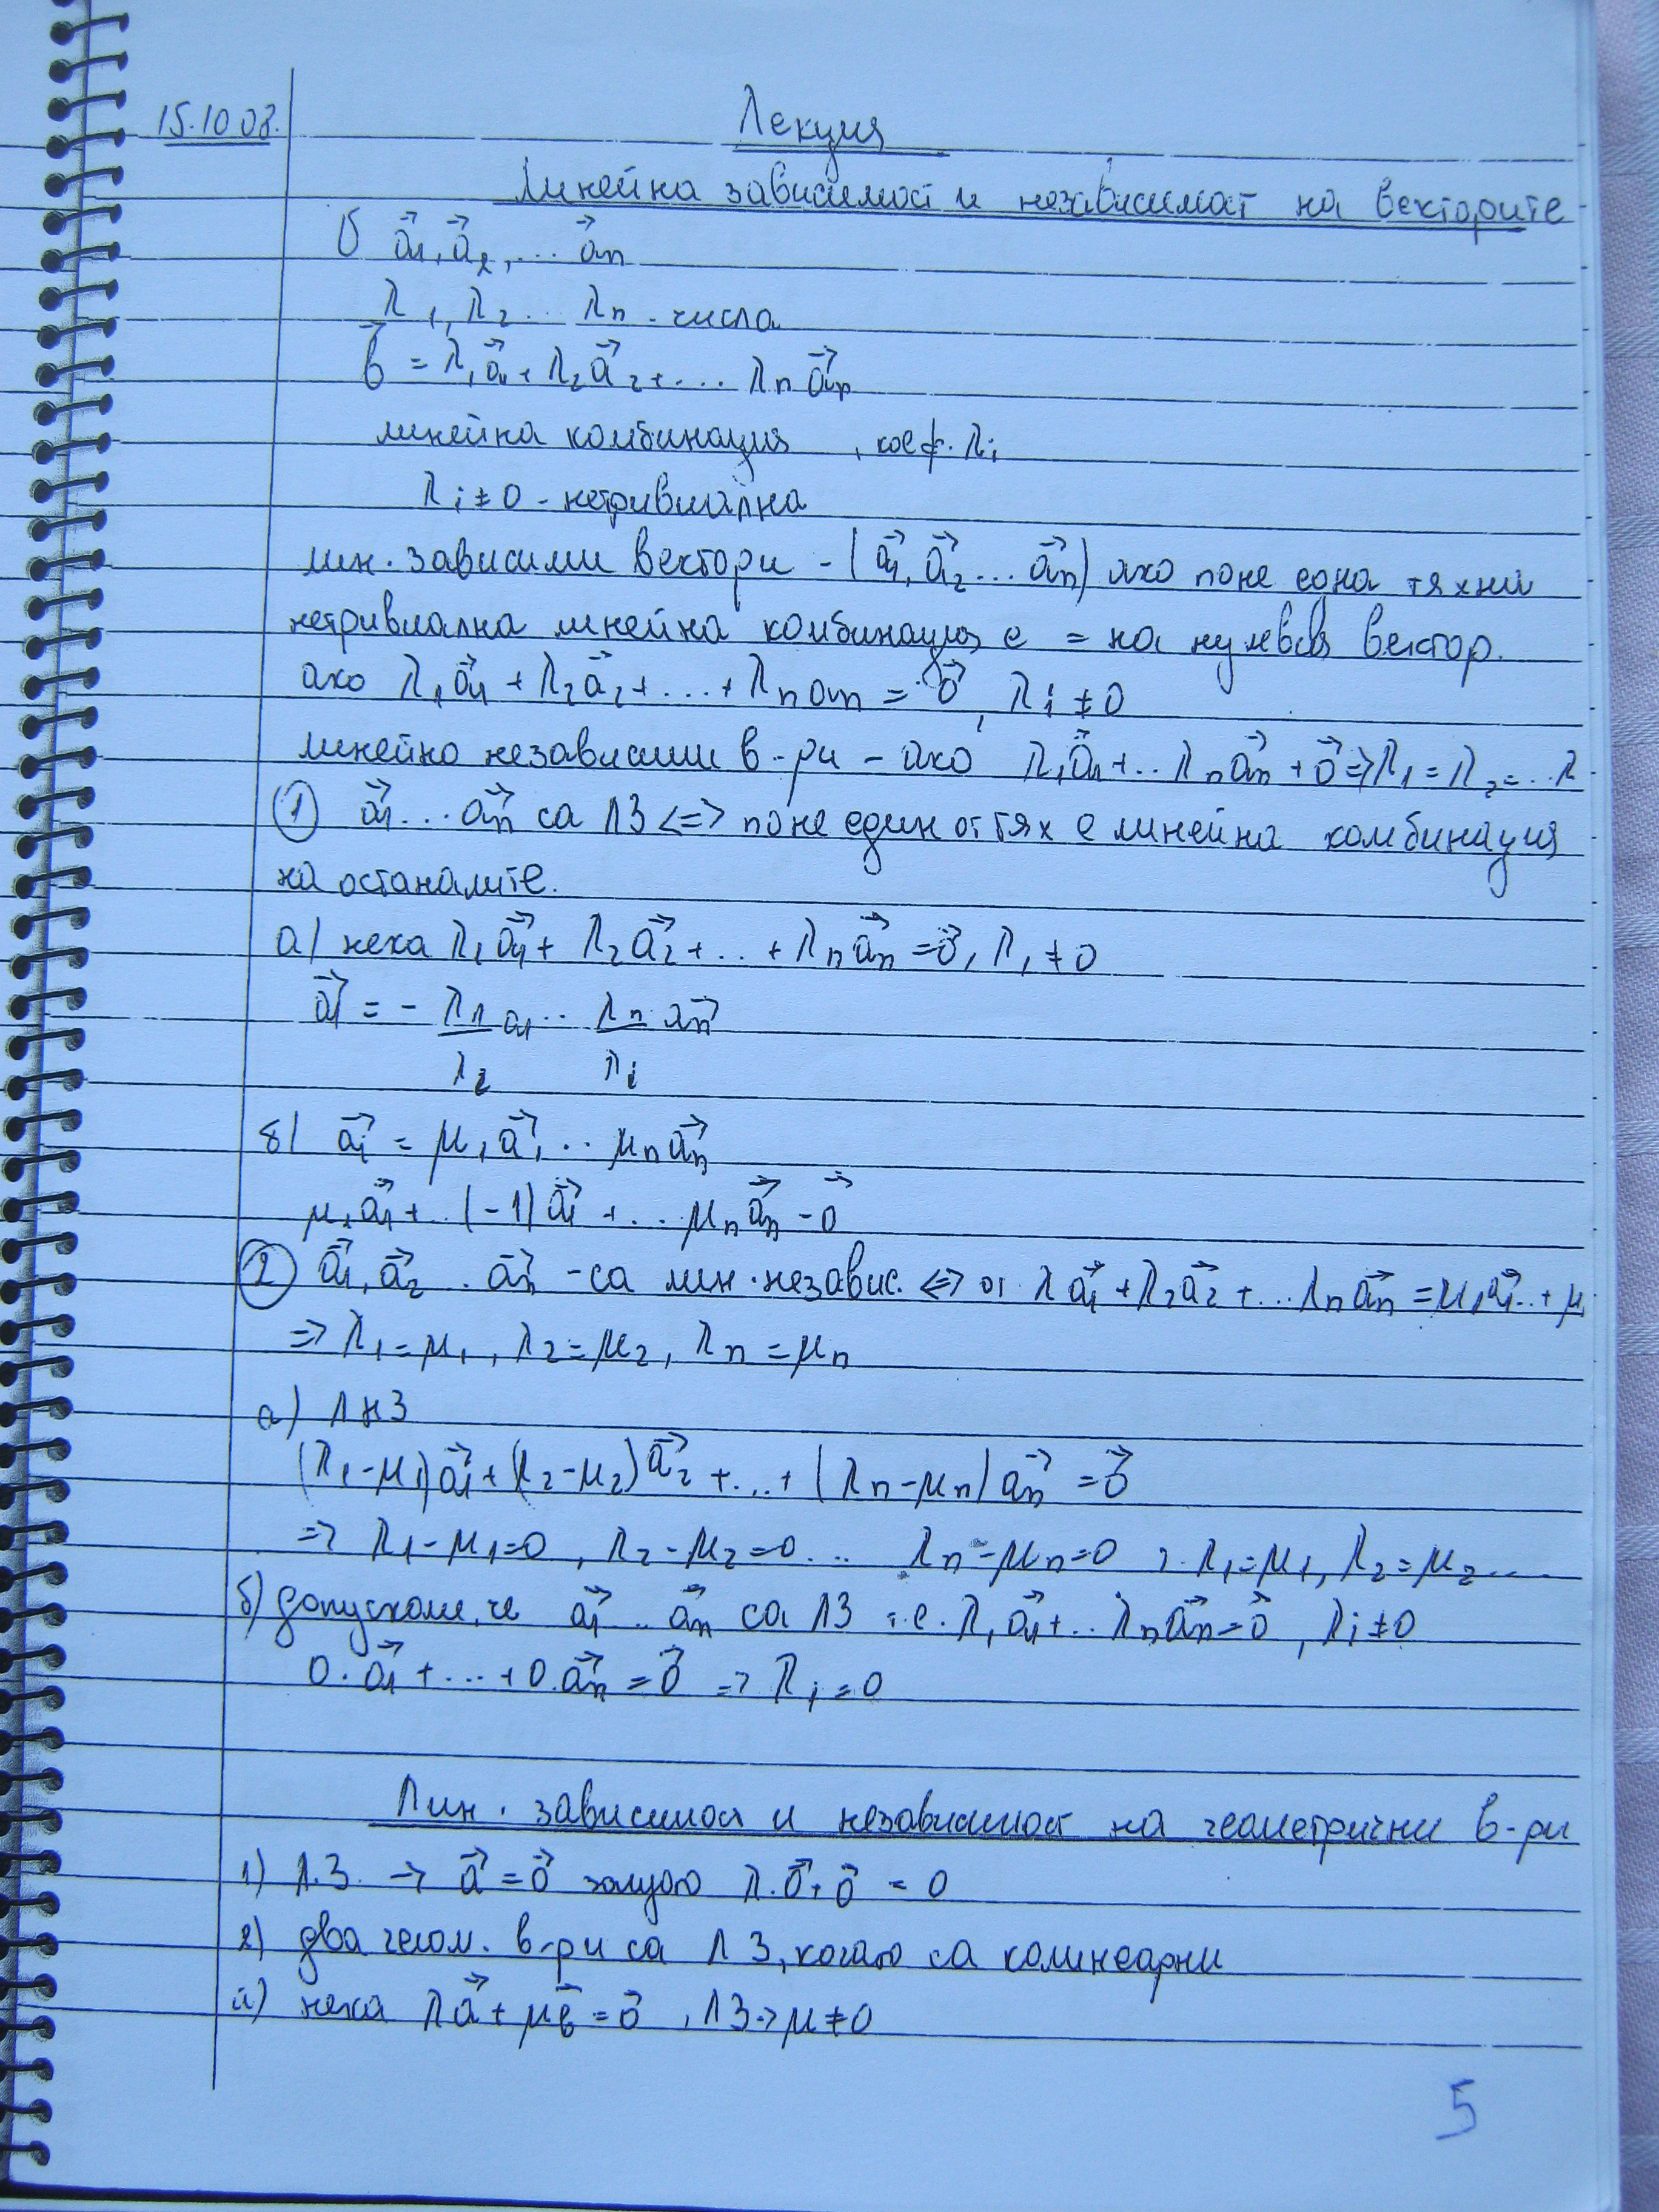 15.10 08.
Лекция
Линейна зависимост и независимост на векторите
b⃗ a⃗1, a⃗2, ... a⃗n
λ1, λ2 ... λn - числа
b⃗ = λ1a⃗1 + λ2a⃗2 + ... λn a⃗n
линейна комбинация , коеф. λi
λi ≠ 0 - нетривиална
лин. зависими вектори - (a⃗1, a⃗2 ... a⃗n) ако поне една тяхна
нетривиална линейна комбинация е = на нулевия вектор.
ако λ1a⃗1 + λ2a⃗2 + ... + λnan = 0⃗, λi ≠ 0
линейно независими в-ри - ако λ1a⃗1 + .. λna⃗n + 0⃗ => λ1 = λ2 = ... λ
① a⃗1 ... a⃗n са ЛЗ <=> поне един от тях е линейна комбинация
на останалите.
а) нека λ1a⃗1 + λ2a⃗2 + ... + λna⃗n = 0⃗, λi ≠ 0
a⃗i = - λ1/λi a1 ... λn/λi a⃗n
б) a⃗i = μ1a⃗1 ... μna⃗n
μ1a⃗1 + .. (-1)a⃗i + ... μna⃗n - 0⃗
② a⃗1, a⃗2 .. a⃗n - са лин. независ. <=> от λa⃗1 + λ2a⃗2 + ... λna⃗n = μ1a⃗1 .. + μ
=> λ1 = μ1, λ2 = μ2, λn = μn
а) ЛНЗ
(λ1 - μ1)a⃗1 + (λ2 - μ2)a⃗2 + ... + (λn - μn)a⃗n = 0⃗
=> λ1 - μ1 = 0, λ2 - μ2 = 0 ... λn - μn = 0 => λ1 = μ1, λ2 = μ2 ....
б) допускаме, че a⃗1 ... a⃗n са ЛЗ т.е. λ1a⃗1 + .. λna⃗n = 0⃗, λi ≠ 0
0.a⃗1 + ... + 0.a⃗n = 0⃗ => λi = 0
Лин. зависимост и независимост на геометрични в-ри
1) Л.З. → a⃗ = 0⃗ защото λ.0⃗ + 0⃗ = 0
2) два геом. в-ри са ЛЗ, когато са колинеарни
а) нека λa⃗ + μb⃗ = 0⃗, ЛЗ → μ ≠ 0
5